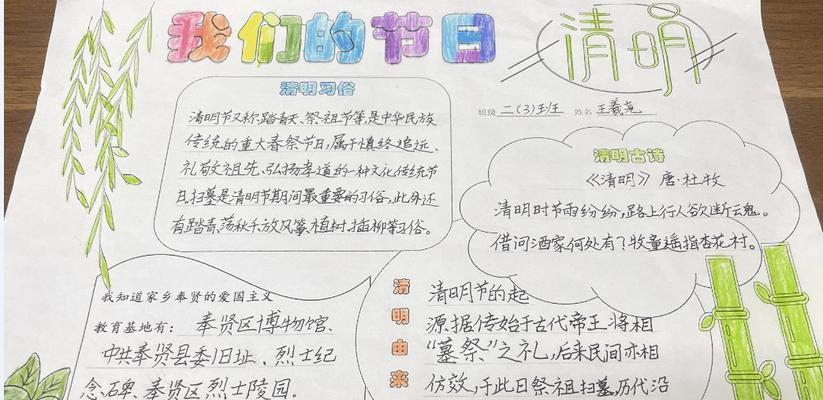 我们的节日
清明
班级 二(3)班 姓名 王羲尧
清明习俗
清明节又称踏青天、祭祖节等,是中华民族
传统的重大春祭节日,属于慎终追远、
礼敬祖先、弘扬孝道的一种文化传统节
日,扫墓是清明节期间最重要的习俗,此外还
有踏青,荡秋千,放风筝,植树,插柳等习俗。
清明古诗
《清明》 唐·杜牧
清明时节雨纷纷,路上行人欲断魂。
借问酒家何处有?牧童遥指杏花村。
我知道家乡奉贤的爱国主义
教育基地有: 奉贤区博物馆、
中共奉贤县委旧址、烈士纪
念碑、奉贤区烈士陵园.
清明由来
清明节的起
源据传始于古代帝王将相
“墓祭”之礼,后来民间亦相
仿效,于此日祭祖扫墓,历代沿